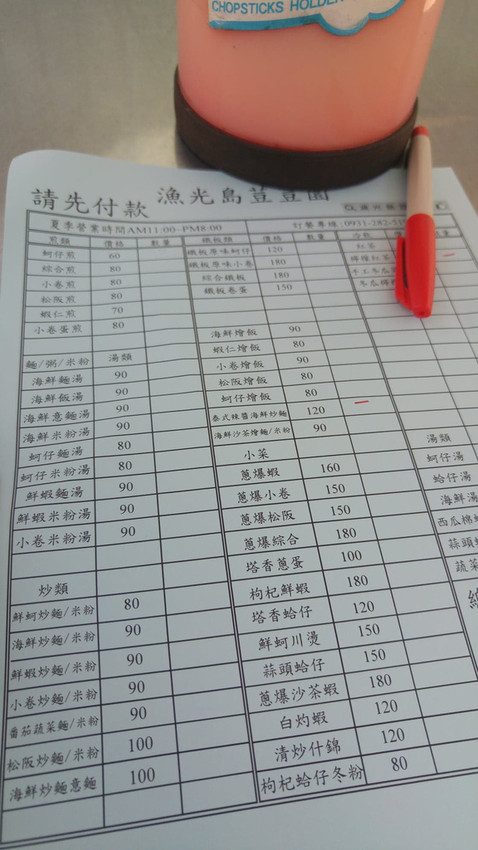 CHOPSTICKS HOLDER
請先付款 漁光島荳荳園
夏季營業時間AM11:00~PM8:00 訂餐專線:0931-282-51
煎類 價格 數量 鐵板類 價格 數量 冷飲
蚵仔煎 60 鐵板原味蚵仔 120 紅茶
綜合煎 80 鐵板原味小卷 180 檸檬紅茶 一
小卷煎 80 綜合鐵板 180
松阪煎 80 鐵板卷蛋 150
蝦仁煎 70
小卷蛋煎 80 海鮮燴飯 90
蝦仁燴飯 90
麵/粥/米粉 湯類 小卷燴飯 90
海鮮麵湯 90 松阪燴飯 80
海鮮飯湯 90 蚵仔燴飯 80
海鮮意麵湯 90 泰式辣醬海鮮炒麵 120 一
海鮮米粉湯 90 海鮮沙茶燴麵/米粉 90
蚵仔麵湯 80 小菜 湯類
蚵仔米粉湯 80 蔥爆蝦 160 蚵仔湯
鮮蝦麵湯 90 蔥爆小卷 150 蛤仔湯
鮮蝦米粉湯 90 蔥爆松阪 150 海鮮湯
小卷米粉湯 90 蔥爆綜合 180 西瓜綿
塔香蔥蛋 100 蒜頭
炒類 枸杞鮮蝦 180 蔬菜
鮮蚵炒麵/米粉 80 塔香蛤仔 120
海鮮炒麵/米粉 90 鮮蚵川燙 150
鮮蝦炒麵/米粉 90 蒜頭蛤仔 150
小卷炒麵/米粉 90 蔥爆沙茶蝦 180
番茄蔬菜麵/米粉 90 白灼蝦 120
松阪炒麵/米粉 100 清炒什錦 120
海鮮炒麵意麵 100 枸杞蛤仔冬粉 80